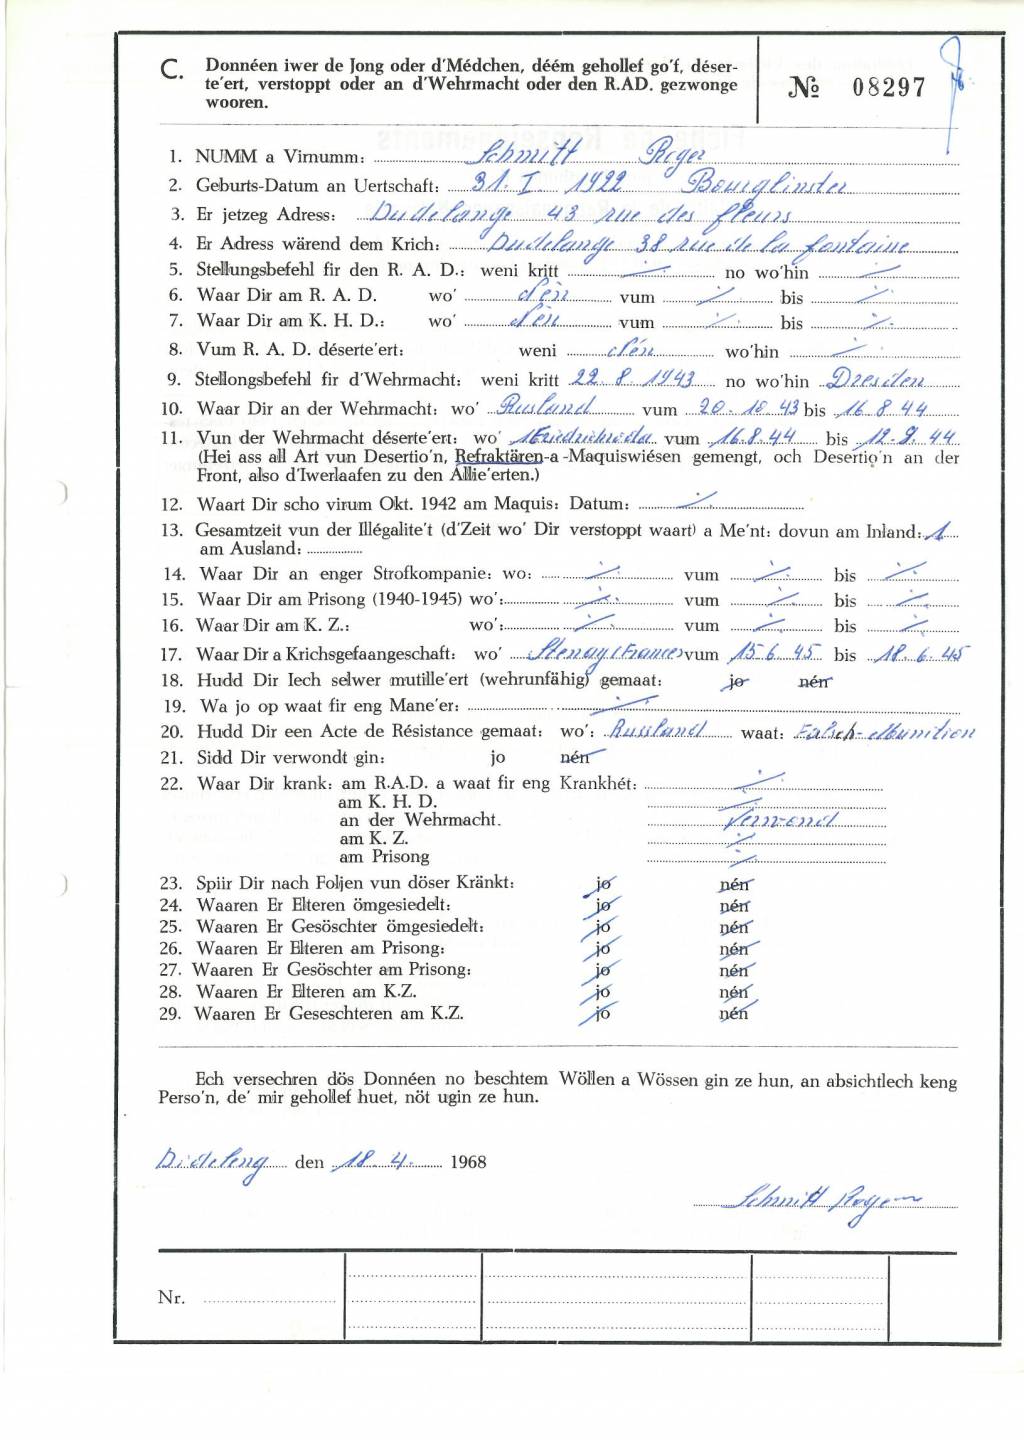 C. Donnéen iwer de Jong oder d'Médchen, déém gehollef go'f, déser-
te'ert, verstoppt oder an d'Wehrmacht oder den R.AD. gezwonge
wooren.
№ 08297
1. NUMM a Virnumm: Schmitt Roger
2. Geburts-Datum an Uertschaft: 31. I. 1922 Bourglinster
3. Er jetzeg Adress: Dudelange 43 rue des fleurs
4. Er Adress wärend dem Krich: Dudelange 38 rue de la fontaine
5. Stellungsbefehl fir den R. A. D.: weni kritt ·/· no wo'hin ·/·
6. Waar Dir am R. A. D. wo' Nén vum ·/· bis ·/·
7. Waar Dir am K. H. D.: wo' Nén vum ·/· bis ·/·
8. Vum R. A. D. déserte'ert: weni Nén wo'hin ·/·
9. Stellongsbefehl fir d'Wehrmacht: weni kritt 22.8.1943 no wo'hin Dresden
10. Waar Dir an der Wehrmacht: wo' Rusland vum 20.10.43 bis 16.8.44
11. Vun der Wehrmacht déserte'ert: wo' vum 16.8.44 bis 12.9.44
(Hei ass all Art vun Desertio'n, Refraktären-a -Maquiswiésen gemengt, och Desertio'n an der
Front, also d'Iwerlaafen zu den Allie'erten.)
12. Waart Dir scho virum Okt. 1942 am Maquis: Datum: ·/·
13. Gesamtzeit vun der Illégalite't (d'Zeit wo' Dir verstoppt waart) a Me'nt: dovun am Inland: 1
am Ausland:
14. Waar Dir an enger Strofkompanie: wo: ·/· vum ·/· bis ·/·
15. Waar Dir am Prisong (1940-1945) wo': ·/· vum ·/· bis ·/·
16. Waar Dir am K. Z.: wo': ·/· vum ·/· bis ·/·
17. Waar Dir a Krichsgefaangeschaft: wo' Stenay (France) vum 15.6.45 bis 18.6.45
18. Hudd Dir Iech selwer mutille'ert (wehrunfähig) gemaat: jo nén
19. Wa jo op waat fir eng Mane'er: ·/·
20. Hudd Dir een Acte de Résistance gemaat: wo': Russland waat: Falsch-Munition
21. Sidd Dir verwondt gin: jo nén
22. Waar Dir krank: am R.A.D. a waat fir eng Krankhét: ·/·
am K. H. D. ·/·
an der Wehrmacht. Verwond
am K. Z. ·/·
am Prisong ·/·
23. Spiir Dir nach Foljen vun döser Kränkt: jo nén
24. Waaren Er Elteren ömgesiedelt: jo nén
25. Waaren Er Gesöschter ömgesiedelt: jo nén
26. Waaren Er Elteren am Prisong: jo nén
27. Waaren Er Gesöschter am Prisong: jo nén
28. Waaren Er Elteren am K.Z. jo nén
29. Waaren Er Geseschteren am K.Z. jo nén
Ech versechren dös Donnéen no beschtem Wöllen a Wössen gin ze hun, an absichtlech keng
Perso'n, de' mir gehollef huet, nöt ugin ze hun.
Dideleng den 18.4. 1968
Schmitt Roger
Nr.